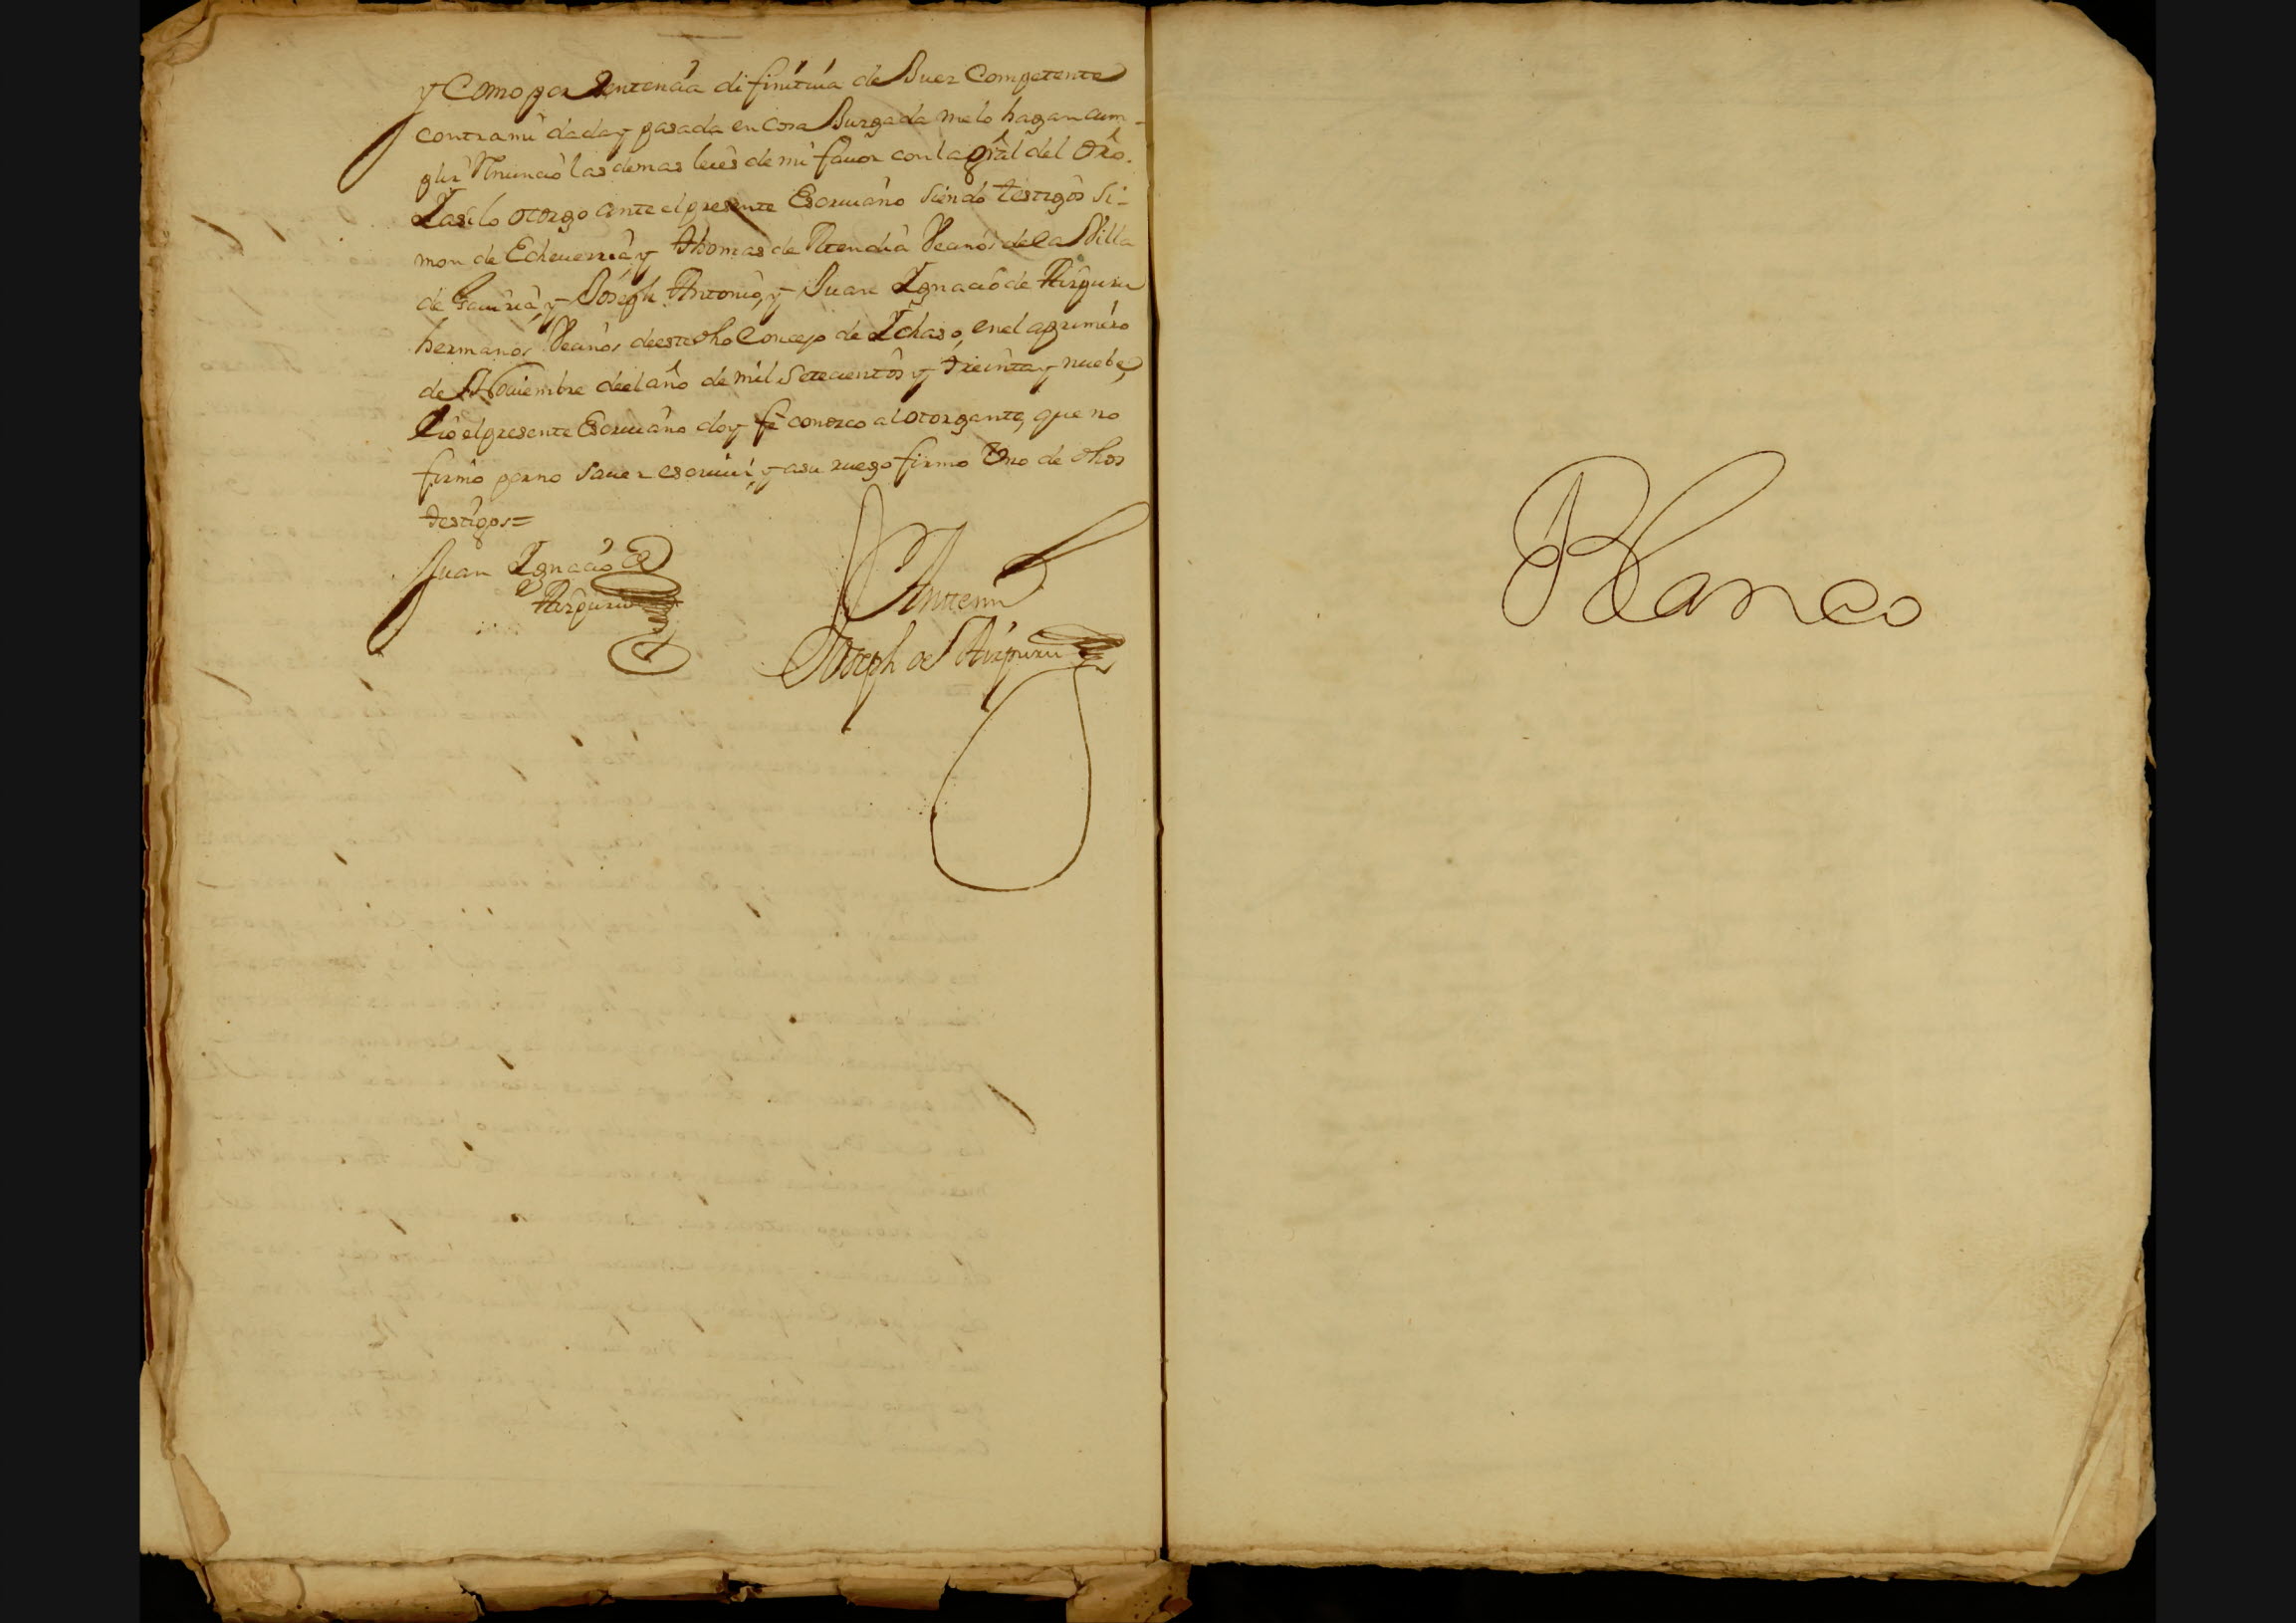 y Como por Sentencia difinitiua de Juez Competente
contra mi dada y pasada en cosa Juzgada me lo hagan cum-
plir Renuncio las demas leies de mi fauor con la gral del dro.
I asi lo otorgo ante el presente Escriuano siendo testigos Si-
mon de Echeuerria, y Thomas de Atendia Vecinos de la Villa
de Gauiria, y Joseph Antonio, y Juan Ignacio de Aizpuru
hermanos Vecinos de este dho Concejo de Ichaso, en el a primero
de Nouiembre de el año de mil Setecientos y treinta y nuebe,
E io el presente Escriuano doy fe conozco al otorgante, que no
firmó por no sauer escriuir, y a su ruego firmo Vno de dhos
testigos=
Juan Ignacio de
Aizpuru
Ante mi
Joseph de Aizpuru
Blanco